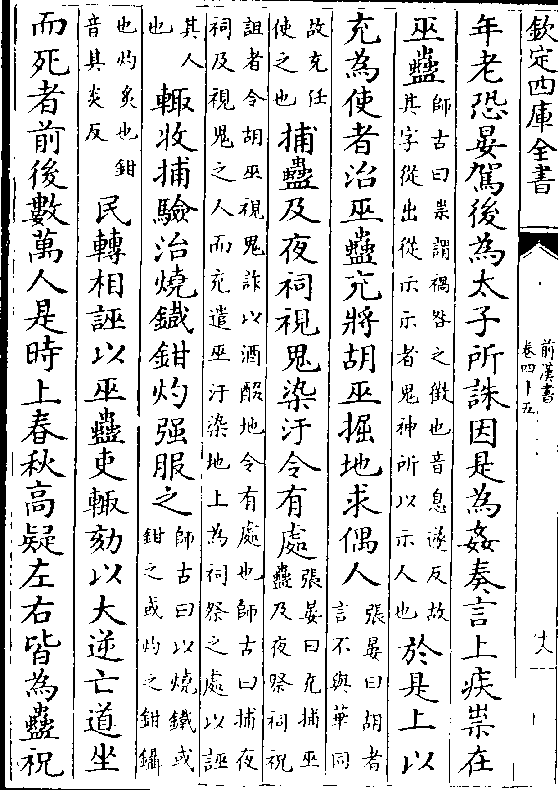 欽定四庫全書
前漢書
卷四十五
十八
年老恐晏駕後為太子所誅因是為姦奏言上疾祟在
巫蠱師古曰祟謂禍咎之徵也音息遂反故
其字從出從示示者鬼神所以示人也於是上以
充為使者治巫蠱充將胡巫掘地求偶人張晏曰胡者
言不與華同
故充任
使之也捕蠱及夜祠視鬼染汙令有處張晏曰充捕巫
蠱及夜祭祠祝
詛者令胡巫視鬼詐以酒醊地令有處也師古曰捕夜
祠及視鬼之人而充遣巫汙染地上為祠祭之處以誣
其人
也輙收捕驗治燒鐵鉗灼强服之師古曰以燒鐵或
鉗之或灼之鉗鑷
也灼炙也鉗
音其炎反民轉相誣以巫蠱吏輙劾以大逆亡道坐
而死者前後數萬人是時上春秋高疑左右皆為蠱祝